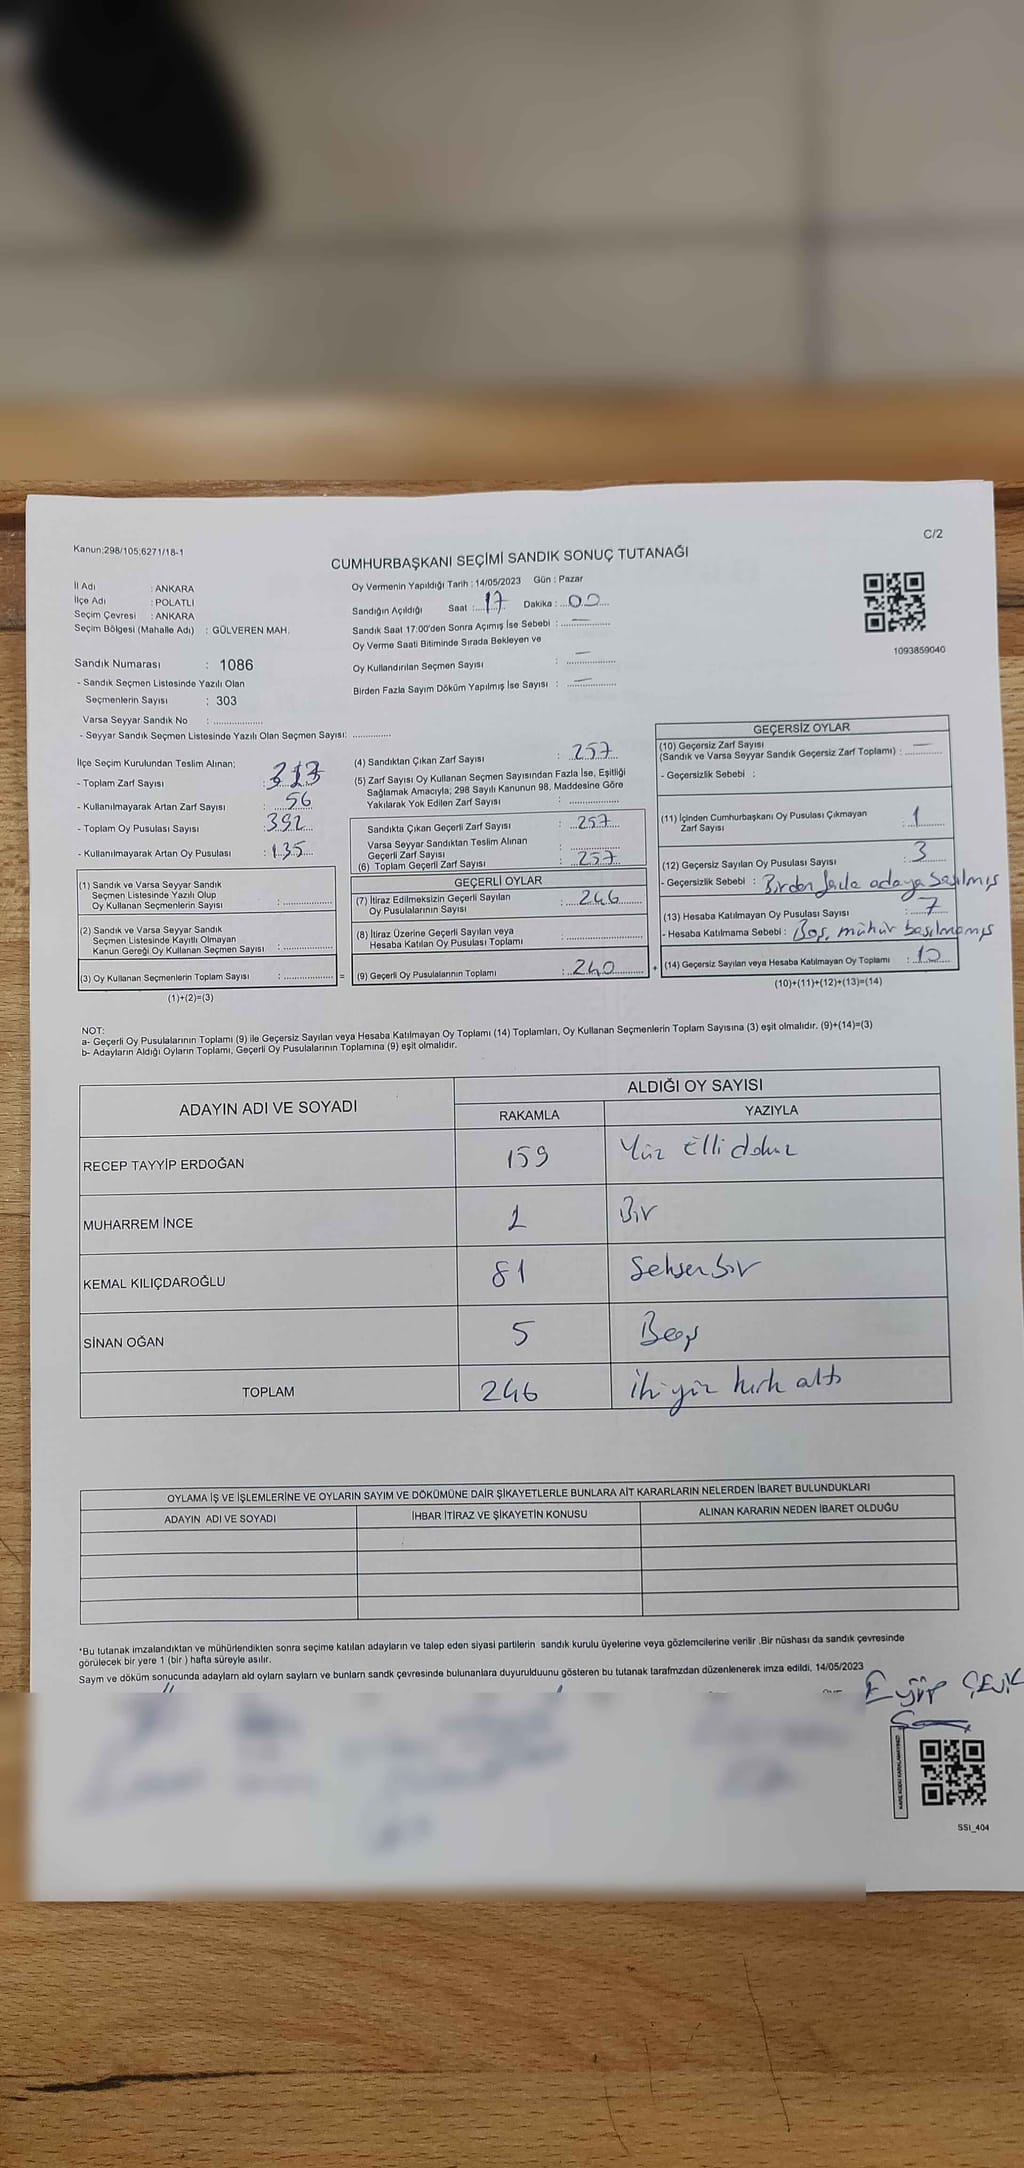 Kanun:298/105;6271/18-1
C/2
CUMHURBAŞKANI SEÇİMİ SANDIK SONUÇ TUTANAĞI
İl Adı : ANKARA
İlçe Adı : POLATLI
Seçim Çevresi : ANKARA
Seçim Bölgesi (Mahalle Adı) : GÜLVEREN MAH.
Oy Vermenin Yapıldığı Tarih : 14/05/2023 Gün : Pazar
Sandığın Açıldığı Saat : 17 Dakika : 00
Sandık Saat 17:00'den Sonra Açımış İse Sebebi : —
Oy Verme Saati Bitiminde Sırada Bekleyen ve
Oy Kullandırılan Seçmen Sayısı : —
Birden Fazla Sayım Döküm Yapılmış İse Sayısı : —
1093859040
Sandık Numarası : 1086
- Sandık Seçmen Listesinde Yazılı Olan
Seçmenlerin Sayısı : 303
Varsa Seyyar Sandık No : ..................
- Seyyar Sandık Seçmen Listesinde Yazılı Olan Seçmen Sayısı: ..............
İlçe Seçim Kurulundan Teslim Alınan;
- Toplam Zarf Sayısı : 313
- Kullanılmayarak Artan Zarf Sayısı : 56
- Toplam Oy Pusulası Sayısı : 392
- Kullanılmayarak Artan Oy Pusulası : 135
(1) Sandık ve Varsa Seyyar Sandık
Seçmen Listesinde Yazılı Olup
Oy Kullanan Seçmenlerin Sayısı : ..................
(2) Sandık ve Varsa Seyyar Sandık
Seçmen Listesinde Kayıtlı Olmayan
Kanun Gereği Oy Kullanan Seçmen Sayısı : ..................
(3) Oy Kullanan Seçmenlerin Toplam Sayısı : .................. =
(1)+(2)=(3)
(4) Sandıktan Çıkan Zarf Sayısı : 257
(5) Zarf Sayısı Oy Kullanan Seçmen Sayısından Fazla İse, Eşitliği
Sağlamak Amacıyla; 298 Sayılı Kanunun 98. Maddesine Göre
Yakılarak Yok Edilen Zarf Sayısı : ..................
Sandıkta Çıkan Geçerli Zarf Sayısı : 257
Varsa Seyyar Sandıktan Teslim Alınan
Geçerli Zarf Sayısı : ..................
(6) Toplam Geçerli Zarf Sayısı : 257
GEÇERLİ OYLAR
(7) İtiraz Edilmeksizin Geçerli Sayılan
Oy Pusulalarının Sayısı : 246
(8) İtiraz Üzerine Geçerli Sayılan veya
Hesaba Katılan Oy Pusulası Toplamı : ..................
(9) Geçerli Oy Pusulalarının Toplamı : 240 +
GEÇERSİZ OYLAR
(10) Geçersiz Zarf Sayısı
(Sandık ve Varsa Seyyar Sandık Geçersiz Zarf Toplamı) : —
- Geçersizlik Sebebi :
(11) İçinden Cumhurbaşkanı Oy Pusulası Çıkmayan
Zarf Sayısı : 1
(12) Geçersiz Sayılan Oy Pusulası Sayısı : 3
- Geçersizlik Sebebi : Birden fazla adaya basılmış
(13) Hesaba Katılmayan Oy Pusulası Sayısı : 7
- Hesaba Katılmama Sebebi : Boş, mühür basılmamış
(14) Geçersiz Sayılan veya Hesaba Katılmayan Oy Toplamı : 10
(10)+(11)+(12)+(13)=(14)
NOT:
a- Geçerli Oy Pusulalarının Toplamı (9) ile Geçersiz Sayılan veya Hesaba Katılmayan Oy Toplamı (14) Toplamları, Oy Kullanan Seçmenlerin Toplam Sayısına (3) eşit olmalıdır. (9)+(14)=(3)
b- Adayların Aldığı Oyların Toplamı, Geçerli Oy Pusulalarının Toplamına (9) eşit olmalıdır.
ADAYIN ADI VE SOYADI
ALDIĞI OY SAYISI
RAKAMLA YAZIYLA
RECEP TAYYİP ERDOĞAN 159 Yüz Elli dokuz
MUHARREM İNCE 1 Bir
KEMAL KILIÇDAROĞLU 81 Seksen bir
SİNAN OĞAN 5 Beş
TOPLAM 246 İki yüz kırk altı
OYLAMA İŞ VE İŞLEMLERİNE VE OYLARIN SAYIM VE DÖKÜMÜNE DAİR ŞİKAYETLERLE BUNLARA AİT KARARLARIN NELERDEN İBARET BULUNDUKLARI
ADAYIN ADI VE SOYADI İHBAR İTİRAZ VE ŞİKAYETİN KONUSU ALINAN KARARIN NEDEN İBARET OLDUĞU
*Bu tutanak imzalandıktan ve mühürlendikten sonra seçime katılan adayların ve talep eden siyasi partilerin sandık kurulu üyelerine veya gözlemcilerine verilir .Bir nüshası da sandık çevresinde
görülecek bir yere 1 (bir ) hafta süreyle asılır.
Saym ve döküm sonucunda adaylarn ald oylarn saylarn ve bunlarn sandk çevresinde bulunanlara duyurulduunu gösteren bu tutanak tarafmzdan düzenlenerek imza edildi, 14/05/2023
Eyüp ÇEVİK
KARE KODU KARALAMAYINIZ!
SSI_404